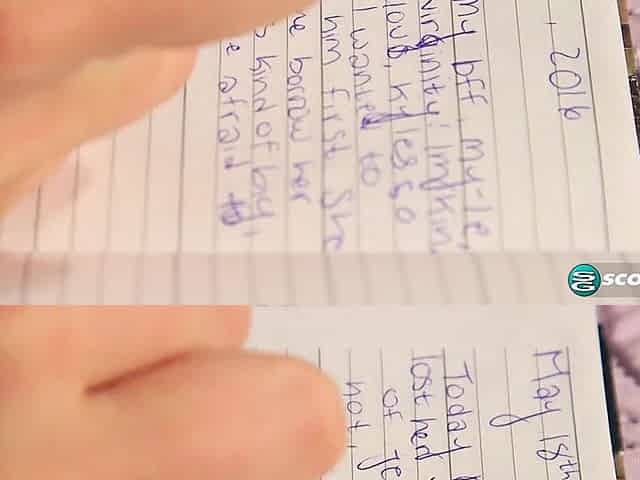 , 2016
my bff, my-le,
virginity! Im kin
so
I wanted to
him first. She
borrow her
kind of big,
afraid to
SCO
May 18th
Today
lost her
of je
not,